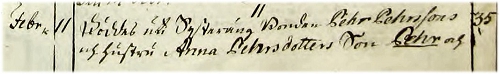 Febr. 11 Föddes uti Systeräng Bonden Pehr Pehrssons 35
och hustru Anna Pehrsdotters Son Pehr och